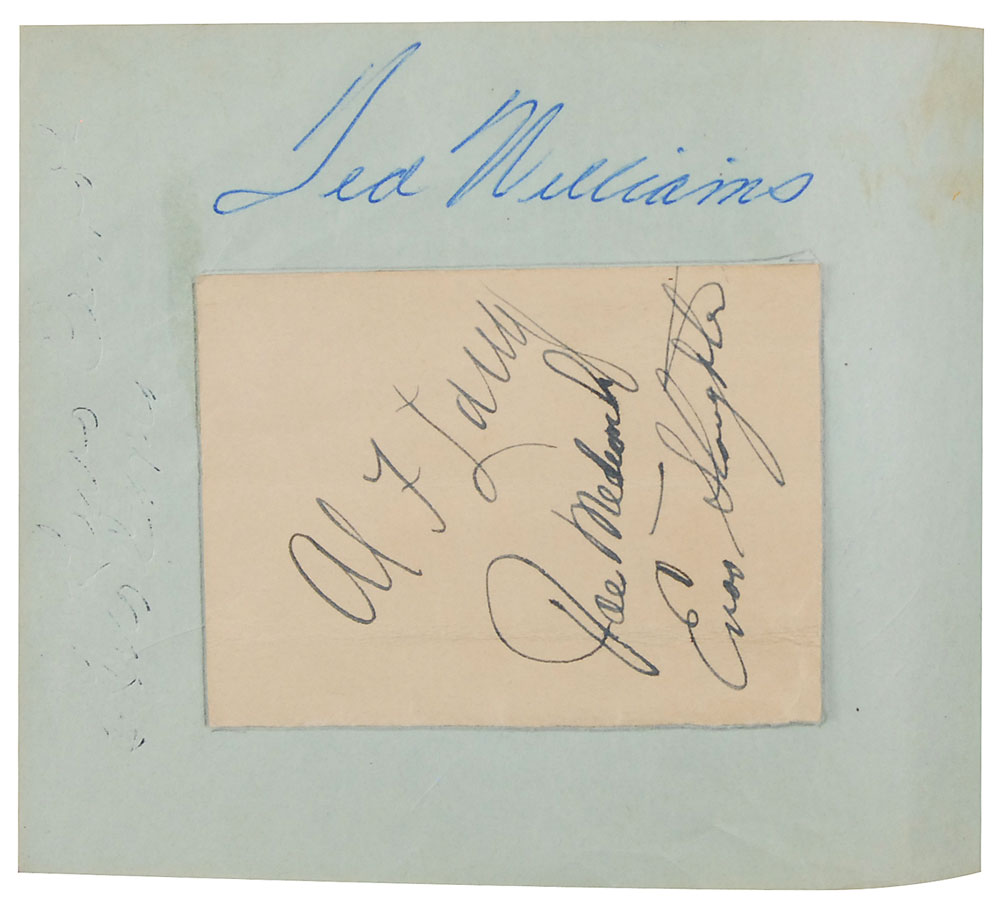 Ted Williams
Al F Lang
Joe Medwick
Enos Slaughter